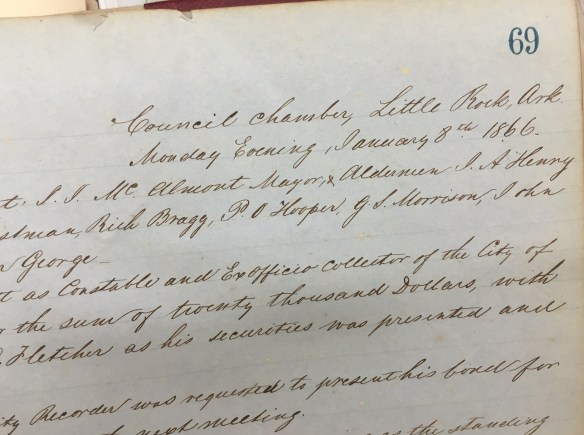 69
Council Chamber, Little Rock, Ark.
Monday Evening, January 8th 1866.
t. J. J. McAlmont Mayor, & Aldermen J. A. Henry
stman, Rich Bragg, P. O Hooper, G S. Morrison, John
George
t as Constable and Ex Officio Collector of the City of
the sum of twenty thousand Dollars, with
Fletcher as his securities was presented and
ity Recorder was requested to present his bond for
next meeting.
as the standing